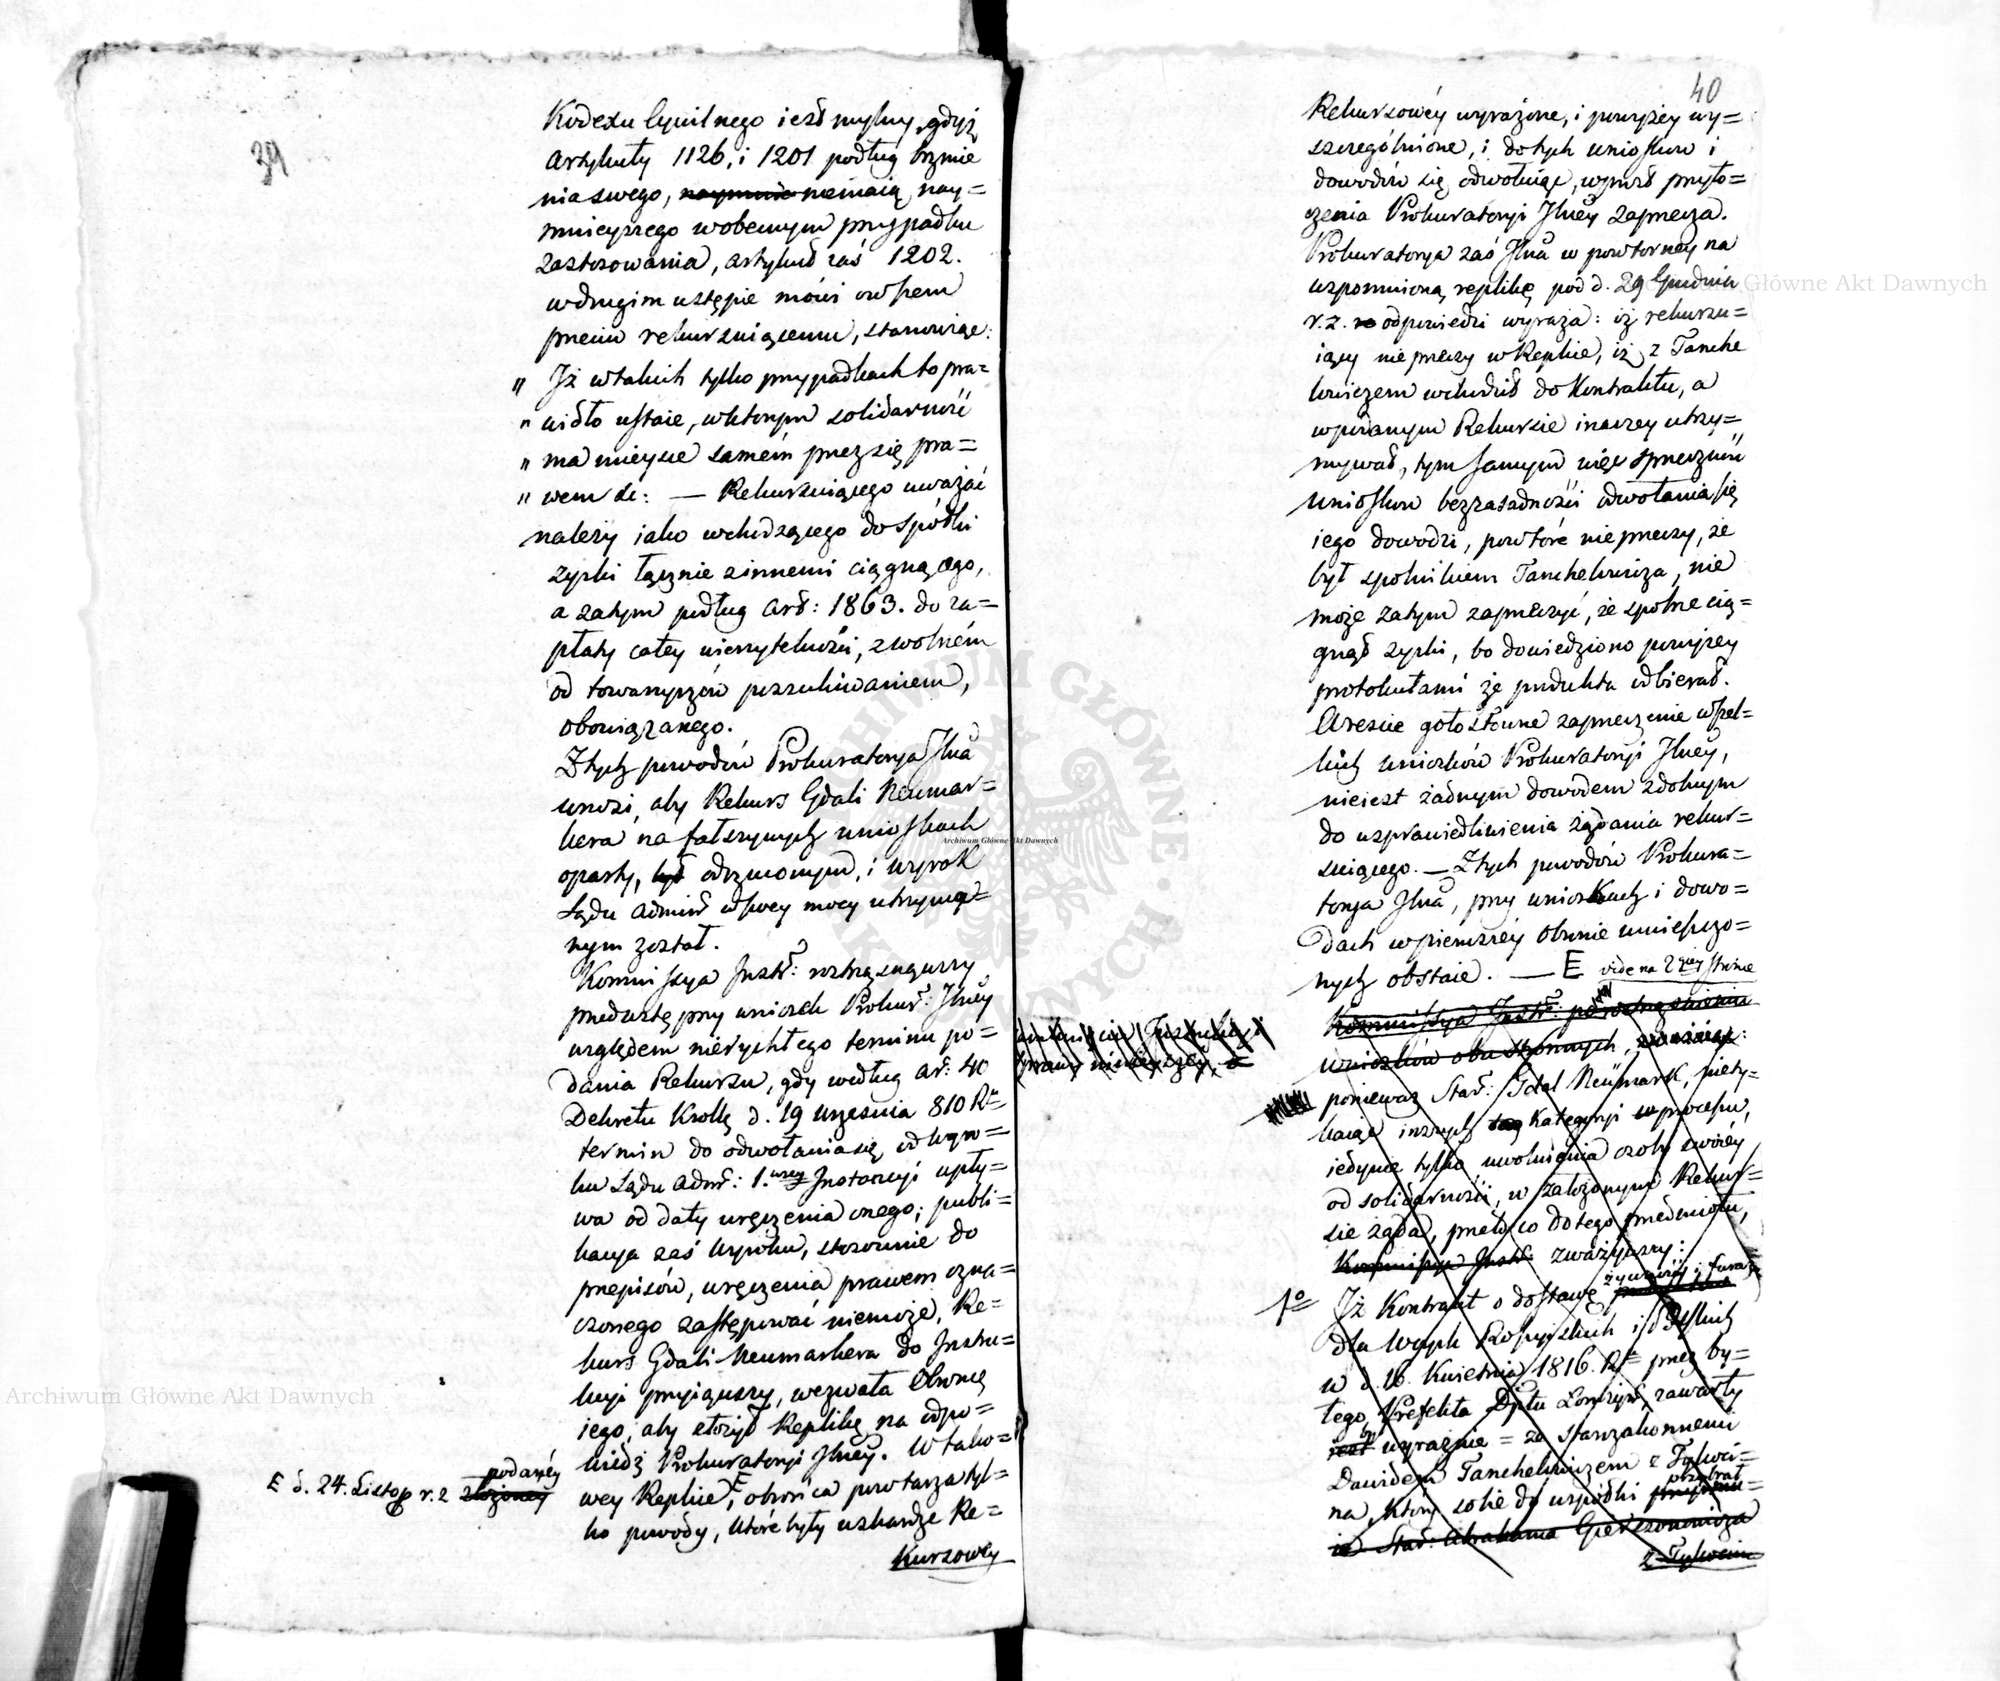 39
Kodexu Cywilnego iest mylny, gdyż
Artykuły 1126, i 1201 podług brzmie
nia swego, naymnie niemaią nay=
mnieyszego wobecnym przypadku
zastosowania, artykuł zaś 1202.
wdrugim ustępie mówi owszem
przeciw rekursuiącemu, stanowiąc:
" Jż wtakich tylko przypadkach to pra=
" widło ustaie, wktorym solidarność
" ma mieysce samém przez się pra=
" wem &c: — Rekursuiącego uważać
należy iako wchodzącego do Spółki
zyski łącznie zinnemi ciągnącego,
a zatym podług art: 1863. do za=
płaty całey wierzytelności, zwolném
od towarzyszów poszukiwaniem,
obowiązanego.
Ztych powodów Prokuratorya Jlna
wnosi, aby Rekurs Gdali Neumar=
kera na fałszywych wnioskach
oparty, był odrzuconym, i wyrok
Sądu Admin wswey mocy utrzyma=
nym został.
Kommissya Instr: roztrząsnąwszy
przedwstępny wniosek Prokur: Jlney
względem nierychłego terminu po=
dania Rekursu, gdy według Ar: 40
Dekretu Krolle d. 19 Września 810 Ru
termin do odwołania się od wyro=
ku Sądu Adm: 1.wszey Instancyi upły=
wa od daty wręczenia onego; publi=
kacya zaś wyroku, stosownie do
przepisów, wręczenia prawem ozna=
czonego zastępować niemoże, Re=
kurs Gdali Neumarkera do Instru=
kcyi przyiąwszy, wezwała Obronę
iego, aby złożył Replikę na odpo=
wiedź Prokuratoryi Jlney. W tako=
E d. 24. Listop r. z złożoney podanéy
wey Replice, E obrońca powtarza tyl=
ko powody, które były wskardze Re=
kursowey
40
Rekursowéy wyrażone, i powyżey wy=
szczególnione, i do tych wniosków i
dowodów się odwołuiąc, wprost przyto=
czenia Prokuratoryi Jlney zaprzecza.
Prokuratorya zaś Jlna w powtorney na
wspomnioną replikę pod d. 29 Grudnia
r. z. odpowiedzi wyraża: iż rekursu=
iący nie przeczy w Replice, iż z Tanche
lewiczem wchodził do Kontraktu, a
wpodanym Rekursie inaczey utrzy=
mywał, tym samym więc sprzeczność
wniosków bezzasadności odwołania się
iego dowodzi, powtóre nie przeczy, że
był spólnikiem Tanchelewicza, nie
może zatym zaprzeczyć, że spólne cią=
gnął zyski, bo dowiedziono powyżey
protokułami że produkta odbierał.
Wreszcie gołosłowne zaprzeczenie wszel=
kich wniosków Prokuratoryi Jlney,
nieiest żadnym dowodem zdolnym
do usprawiedliwienia żądania rekur=
suiącego. — Ztych powodów Prokura=
torya Jlna, przy wnioskach i dowo=
dach wpierwszéy obronie umieszczo=
nych obstaie. — E vide na 2giey stronie
Kommissya Instr: po roztrząśnieniu
wniosków obustronnych, zważaiąc:
ponieważ Star: Gdal Neümark, niety=
kaiąc inszych Kategoryi wprocessu,
iedynie tylko uwolnienia osoby swoiéy
od solidarności, w założonym Rekur=
sie żąda, przeto co do tego przedmiotu,
Kommissya Instr: zważywszy:
1o Jż Kontrakt o dostawę żywności i furaży
dla Woysk Rossyiskich i Polskich
w d. 16. Kwietnia 1816. Rt przez by=
łego Prefekta Dptu Łomżyń: zawarty
iest wyraźnie = ze Starozakonnemi
Dawidem Tanchelewiczem z Tykoci=
na, który sobie do współki przybrał
Star: Abrahama Gierszonowicza
z Tykocina